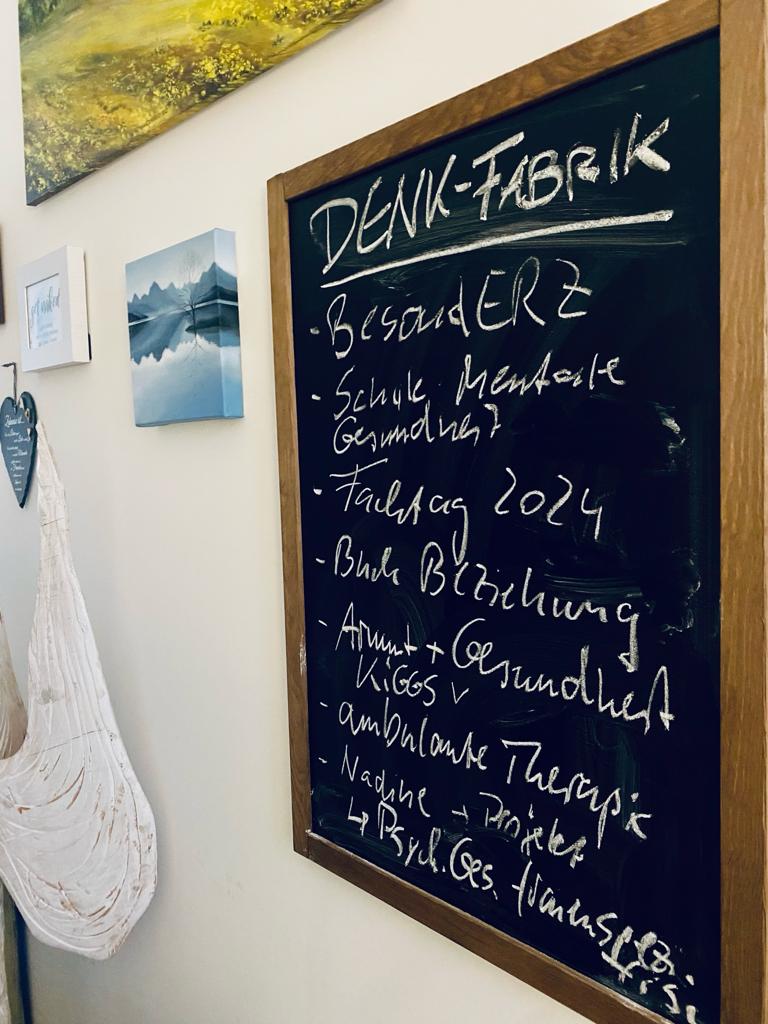 DENK-FABRIK
- BesondERZ
- Schule Mentale
Gesundheit
- Fachtag 2024
- Buch Beziehung
- Armut + Gesundheit
KiGGS v
- ambulante Therapie
- Nadine → Projekt
↳ Psych. Ges. frauenspezi-
fisch
get naked